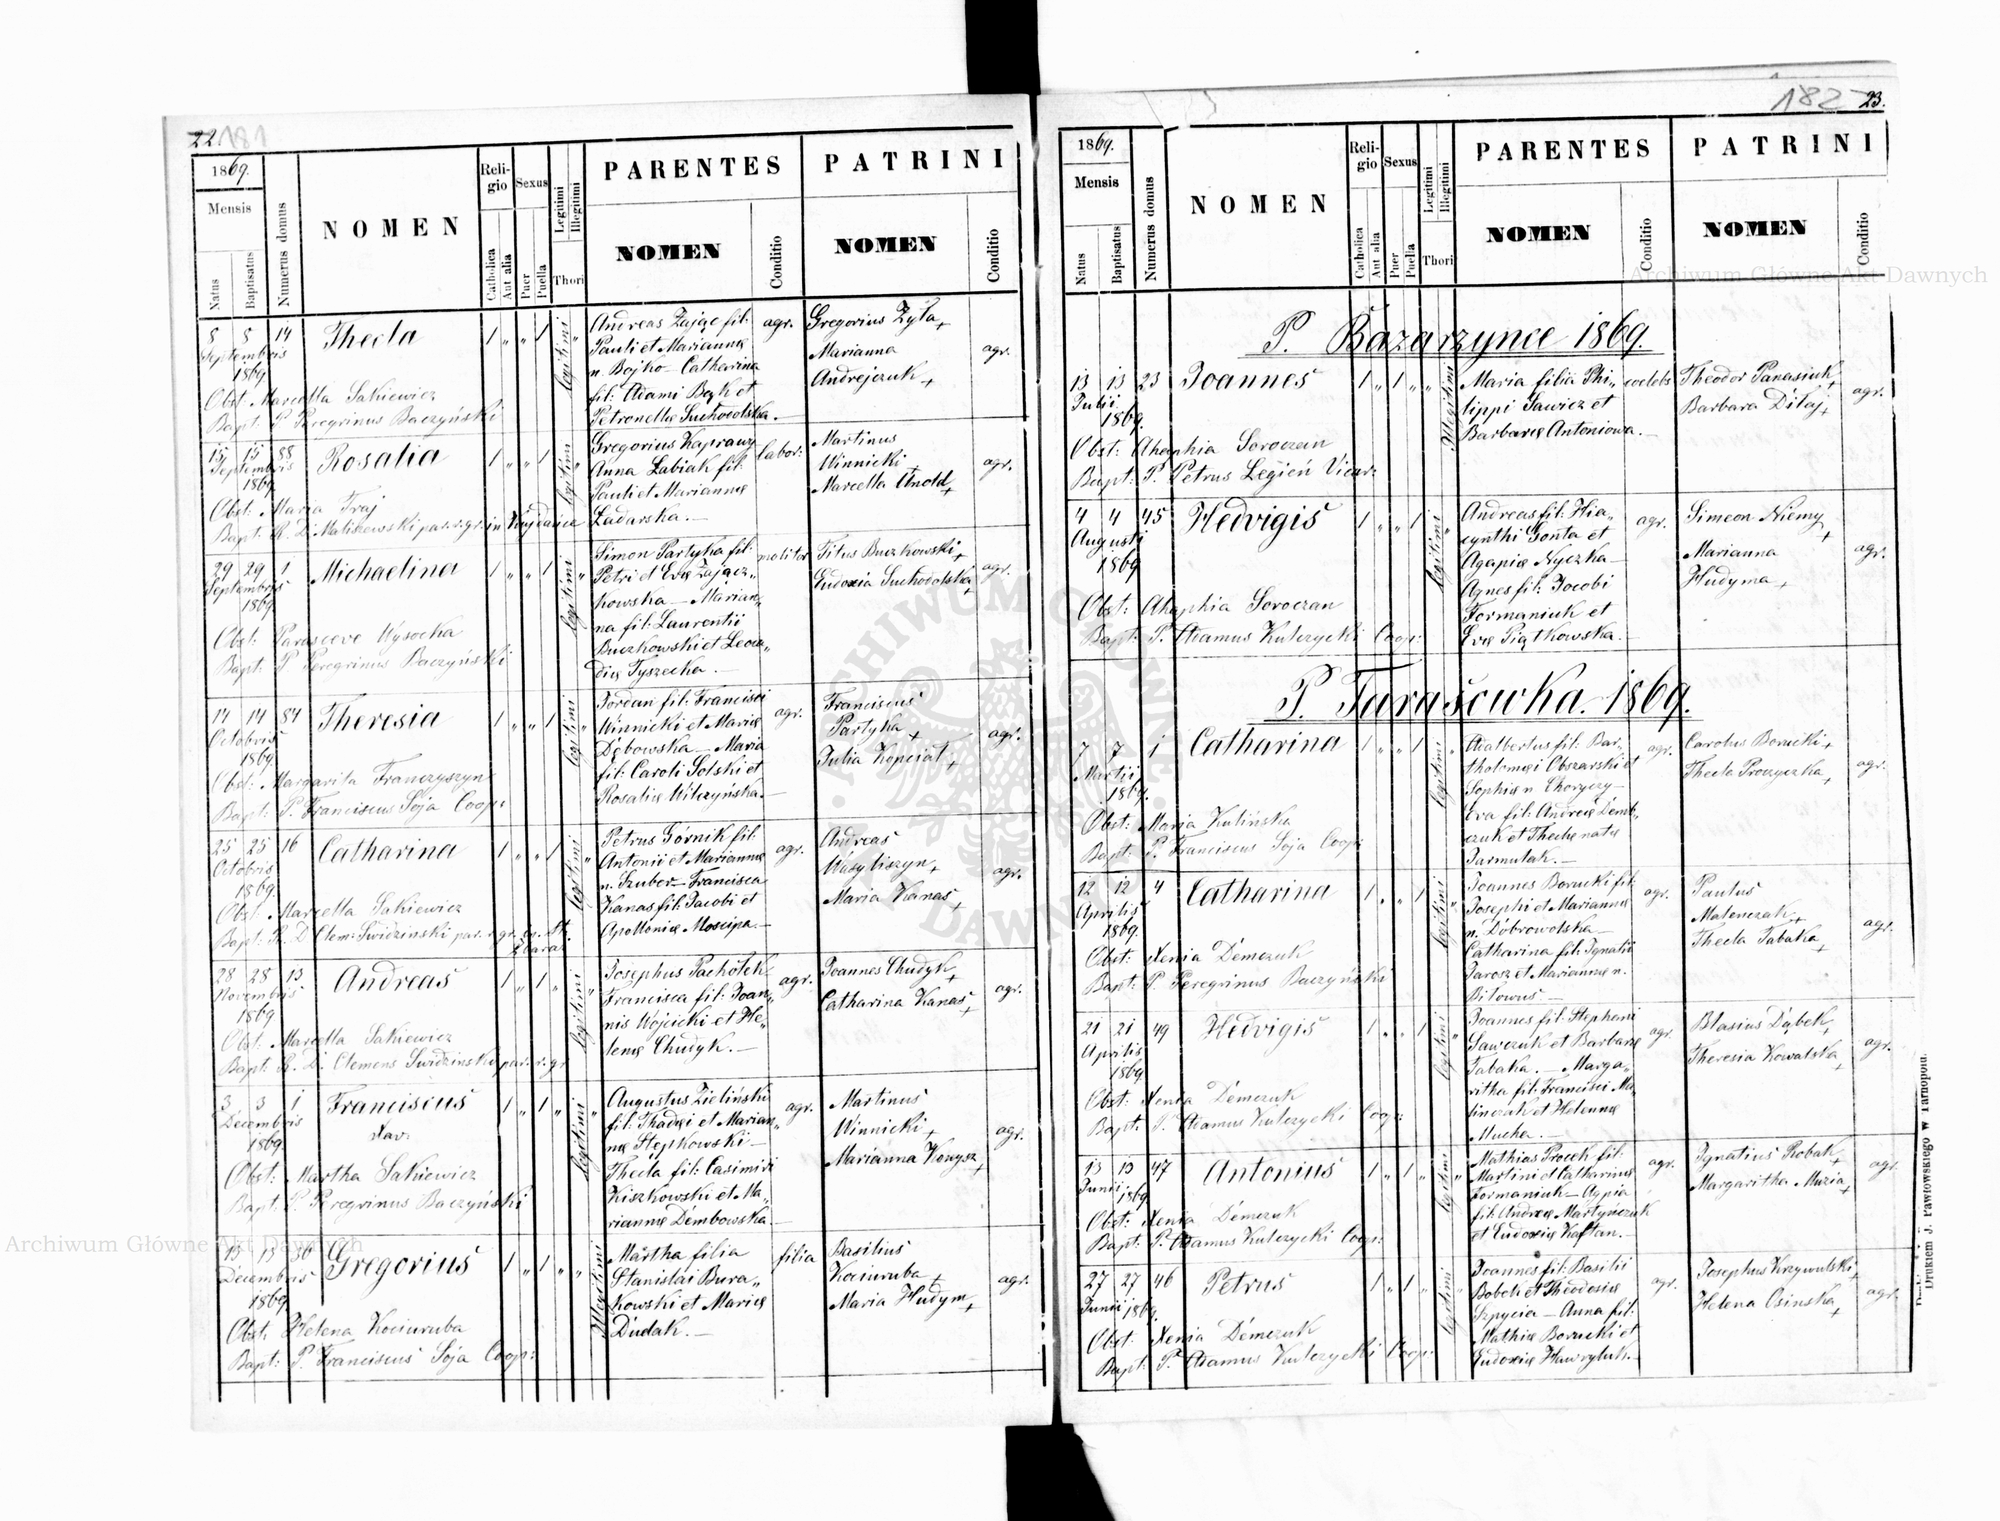 22.
181
1869.
Mensis
Natus
Baptisatus
Numerus domus
NOMEN
Religio
Catholica
Aut alia
Sexus
Puer
Puella
Legitimi
Illegitimi
Thori
PARENTES
NOMEN
Conditio
PATRINI
NOMEN
Conditio
5 5 14 Thecla 1 „ „ 1 legitimi „
Septembris
1869
Obst. Marcella Sakiewicz
Bapt. P. Peregrinus Baczyński
Andreas Zając fil: agr.
Pauli et Mariannæ
n. Bojko – Catharina
fil: Adami Bąk et
Petronellæ Suchodolska.—
Gregorius Zyła +
Marianna agr.
Andrejczuk +
15 15 88 Rosalia 1 „ „ 1 legitimi „
Septembris
1869
Obst. Maria Traj
Bapt. R. D. Maliszewski par. r. gr. in Kujdańce
Gregorius Kaprawy labor:
Anna Labiak fil:
Pauli et Mariannæ
Ladarska.—
Martinus
Winnicki + agr.
Marcella Arnold +
29 29 1 Michaelina 1 „ „ 1 legitimi „
Septembris
1869
Obst: Parasceve Wysocka
Bapt: P. Peregrinus Baczyński
Simon Partyka fil: molitor
Petri et Evæ Zającz„
kowska — Marian„
na fil: Laurentii
Buczkowski et Leoca„
diæ Tyszecka.—
Titus Buczkowski +
Eudoxia Suchodolska + agr.
14 14 84 Theresia 1 „ „ 1 legitimi „
Octobris
1869
Obst: Margarita Franczyszyn
Bapt: P. Franciscus Soja Coop:
Jordan fil: Francisci agr.
Winnicki et Mariæ
Dębowska — Maria
fil: Caroli Solski et
Rosaliæ Wilczyńska.—
Franciscus
Partyka + agr.
Julia Kopciat +
25 25 16 Catharina 1 „ „ 1 legitimi „
Octobris
1869
Obst. Marcella Sakiewicz
Bapt: R. D. Clem: Swidzinski par. r. gr. in St.
Zbaraż
Petrus Górnik fil: agr.
Antonii et Mariannæ
n. Szuber – Francisca
Kanas fil: Jacobi et
Apolloniæ Moscipa.—
Andreas
Wasyliszyn + agr.
Maria Kanas +
28 28 13 Andreas 1 „ 1 „ legitimi „
Novembris
1869
Obst. Marcella Sakiewicz
Bapt: R. D. Clemens Swidzinski par. r. gr
Josephus Pachołek agr.
Francisca fil: Joan„
nis Wojcicki et He„
lenæ Chudyk.—
Joannes Chudyk +
Catharina Kanas + agr.
3 3 1 Franciscus 1 „ 1 „ legitimi „
Decembris Xav:
1869
Obst: Martha Sakiewicz
Bapt. P. Peregrinus Baczyński
Augustus Zieliński agr.
fil: Thadæi et Marian„
næ Stepkowski —
Thecla fil: Casimiri
Kiszkowski et Ma„
riannæ Dembowska.—
Martinus
Winnicki + agr.
Marianna Konysz +
13 13 36 Gregorius 1 „ 1 „ „ Illegitimi
Decembris
1869
Obst. Helena Kociuruba
Bapt: P. Franciscus Soja Coop:
Martha filia filia
Stanislai Bura„
kowski et Mariæ
Dudak.—
Basilius
Kociuruba + agr.
Maria Hudym +
182
23.
1869.
Mensis
Natus
Baptisatus
Numerus domus
NOMEN
Religio
Catholica
Aut alia
Sexus
Puer
Puella
Legitimi
Illegitimi
Thori
PARENTES
NOMEN
Conditio
PATRINI
NOMEN
Conditio
P. Bazarzynce 1869.
13 13 23 Joannes 1 „ 1 „ „ Illegitimi
Julii
1869
Obst: Ahaphia Soroczan
Bapt: P. Petrus Legień Vicar:
Maria filia Phi„ coelebs
lippi Sawicz et
Barbaræ Antoniowa.—
Theodor Panasiuk +
Barbara Diłaj + agr.
4 4 45 Hedvigis 1 „ „ 1 legitimi „
Augusti
1869
Obst: Ahaphia Soroczan
Bapt: P. Adamus Kulczycki Coop:
Andreas fil: Hia„ agr.
cynthi Gonta et
Agapiæ Nyczka—
Agnes fil: Jacobi
Formaniuk et
Evæ Piątkowska.—
Simeon Niemy +
Marianna agr.
Hudyma +
P. Tarasówka. 1869.
7 7 1 Catharina 1 „ „ 1 legitimi „
Martii
1869.
Obst: Maria Kulińska
Bapt: P. Franciscus Soja Coop:
Adalbertus fil: Bar„ agr.
tholomæi Obszarski et
Sophiæ n. Chorzyczy—
Eva fil: Andreæ Demb„
czuk et Theclæ natæ
Jarmulak.—
Carolus Borucki +
Thecla Proczyczka + agr.
12 12 4 Catharina 1 „ „ 1 legitimi „
Aprilis
1869.
Obst: Xenia Demczuk
Bapt: P. Peregrinus Baczyński
Joannes Borucki fil: agr.
Josephi et Mariannæ
n. Dobrowolska—
Catharina fil: Ignatii
Jarosz et Mariannæ n.
Biłowus.—
Paulus
Malenczak + agr.
Thecla Tabaka +
21 21 49 Hedvigis 1 „ „ 1 legitimi „
Aprilis
1869
Obst: Xenia Demczuk
Bapt: P. Adamus Kulczycki Coop:
Joannes fil: Stephani agr.
Sawczuk et Barbaræ
Tabaka.— Marga„
ritha fil: Francisci Ma„
linczak et Helenæ
Mucha.—
Blasius Dąbek +
Theresia Kowalska + agr.
13 13 47 Antonius 1 „ 1 „ legitimi „
Junii 1869
Obst: Xenia Demczuk
Bapt: P. Adamus Kulczycki Coop:
Mathias Procek fil: agr.
Martini et Catharinæ
Formaniuk— Agpia
fil: Andreæ Martyńczuk
et Eudoxiæ Kaftan.—
Ignatius Robak +
Margaritha Muzia + agr.
27 27 46 Petrus 1 „ 1 „ legitimi „
Junii 1869.
Obst: Xenia Demczuk
Bapt: P. Adamus Kulczycki Coop:
Joannes fil: Basilii agr.
Bobek et Theodosiæ
Szpycia — Anna fil:
Mathiæ Borucki et
Eudoxiæ Hawryluk.—
Josephus Krzywulski +
Helena Osinska + agr.
Drukiem J. Pawłowskiego w Tarnopolu.
Archiwum Główne Akt Dawnych
Archiwum Główne Akt Dawnych
ARCHIWUM GŁÓWNE AKT DAWNYCH